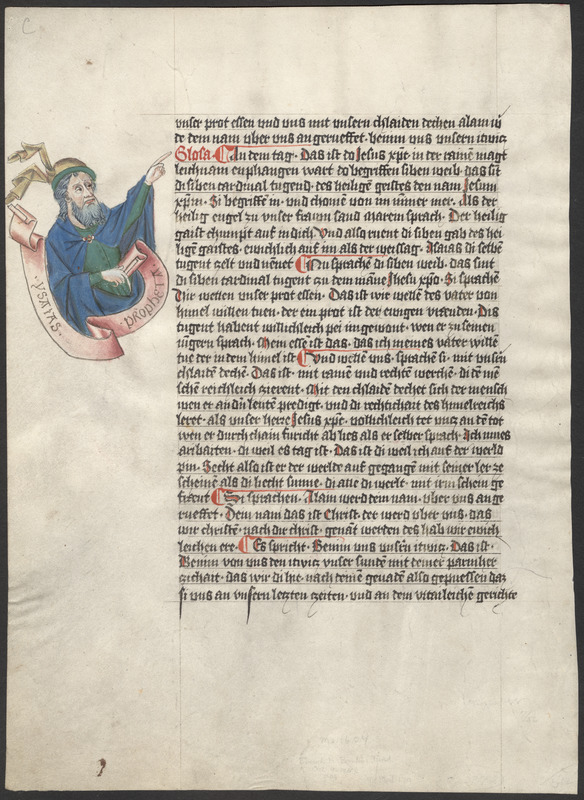 C
vnser prot essen vnd vns mit vnsern chlaiden dechen alain w̄
de dein nam vber vns angerueffet. benim vns vnsern itwicz
Glosa. An dem tag. Das ist do Jesus xp̄c in der rainē magt
leichnam enphangen wart do begriffen siben weib. das sint
di siben cardinal tugend. des heiligē geistes den nam Jesum
xp̄m. Si begriffē in. vnd chomē von im nimer mer. Als der
heilig engel zu vnser frawn sand Marein sprach. Der heilig
gaist chumpt auf in dich. Vnd also ruent di siben gab des hei
ligē gaistes. ewichlich auf im als der weissag. Isaias di selbē
tugent zelt vnd nēnet. Nu sprachē di siben weib. das sint
di siben cardinal tugent zu dem māne Jhesu xp̄o. Si sprachē
Wir wellen vnser prot essen. Das ist wir wellē des vater von
himel willen tuen. der ein prot ist der ewigen vrewden. Dis
tugent habent vollichleich pei im gewont. wen er zu seinen
iūgern sprach. Mein essē ist das. das ich meines vater willē
tue der in dem himel ist. Vnd wellē vns. sprachē si. mit vnsern
chlaidē dechē. Das ist. mit rainē vnd rechtē werchē. di dē mē
schē reichleich zierent. Mit den chlaidē dechet sich der mensch
wen er andn̄ leutē predigt. vnd di rechtichait des himelreichs
leret. als vnser herre Jesus xp̄c. vollichleich tet vncz an dē tot
wen er durch chain furicht ab lies als er selber sprach. Ich mues
aribaiten. di weil es tag ist. Das ist di weil ich auf der werld
pin. Secht also ist er der werlde auf gegangē mit seiner ler ze
scheinē als di liecht sunne. di alle di werlt. mit irm schein ge
frewt. Si sprachen. Alain werd dein nam. vber vns ange
rueffet. Dein nam das ist Christ. der werd vber vns. das
wir christē. nach dir christ. genāt werden des hab wir ewich
leichen ere. Es spricht. Benim vns vnsern itwicz. Das ist.
Benim von vns den itwicz vnser sundē mit deiner parmher
zichait. das wir di hie. nach deinē genadē also gepuessen daz
si vns an vnsern lezten zeiten. vnd an dem vrtailleichē gerichte
YSAIAS.
PROPHETA